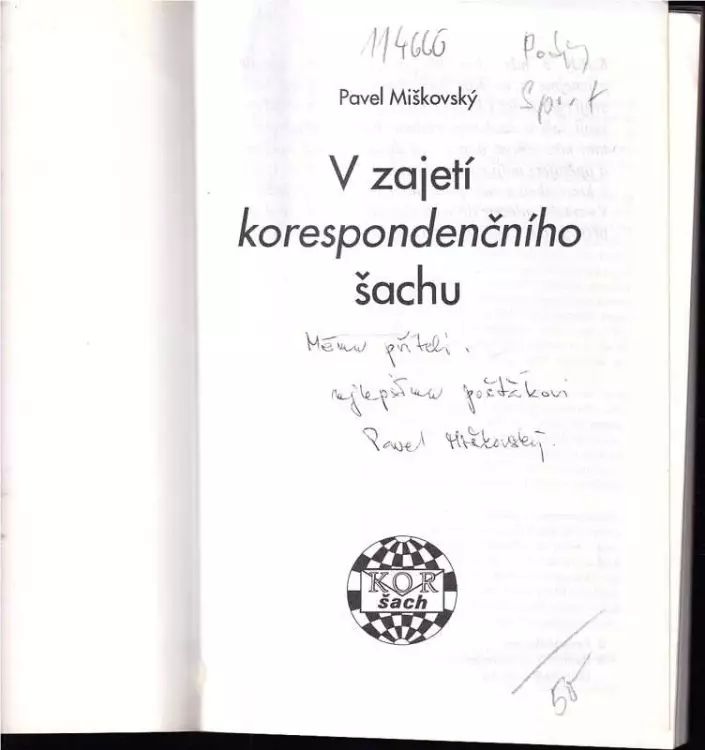 114666
Sport
Pavel Miškovský
V zajetí
korespondenčního
šachu
Mému příteli,
nejlepšímu pošťákovi
Pavel Miškovský.
KOR
šach
50